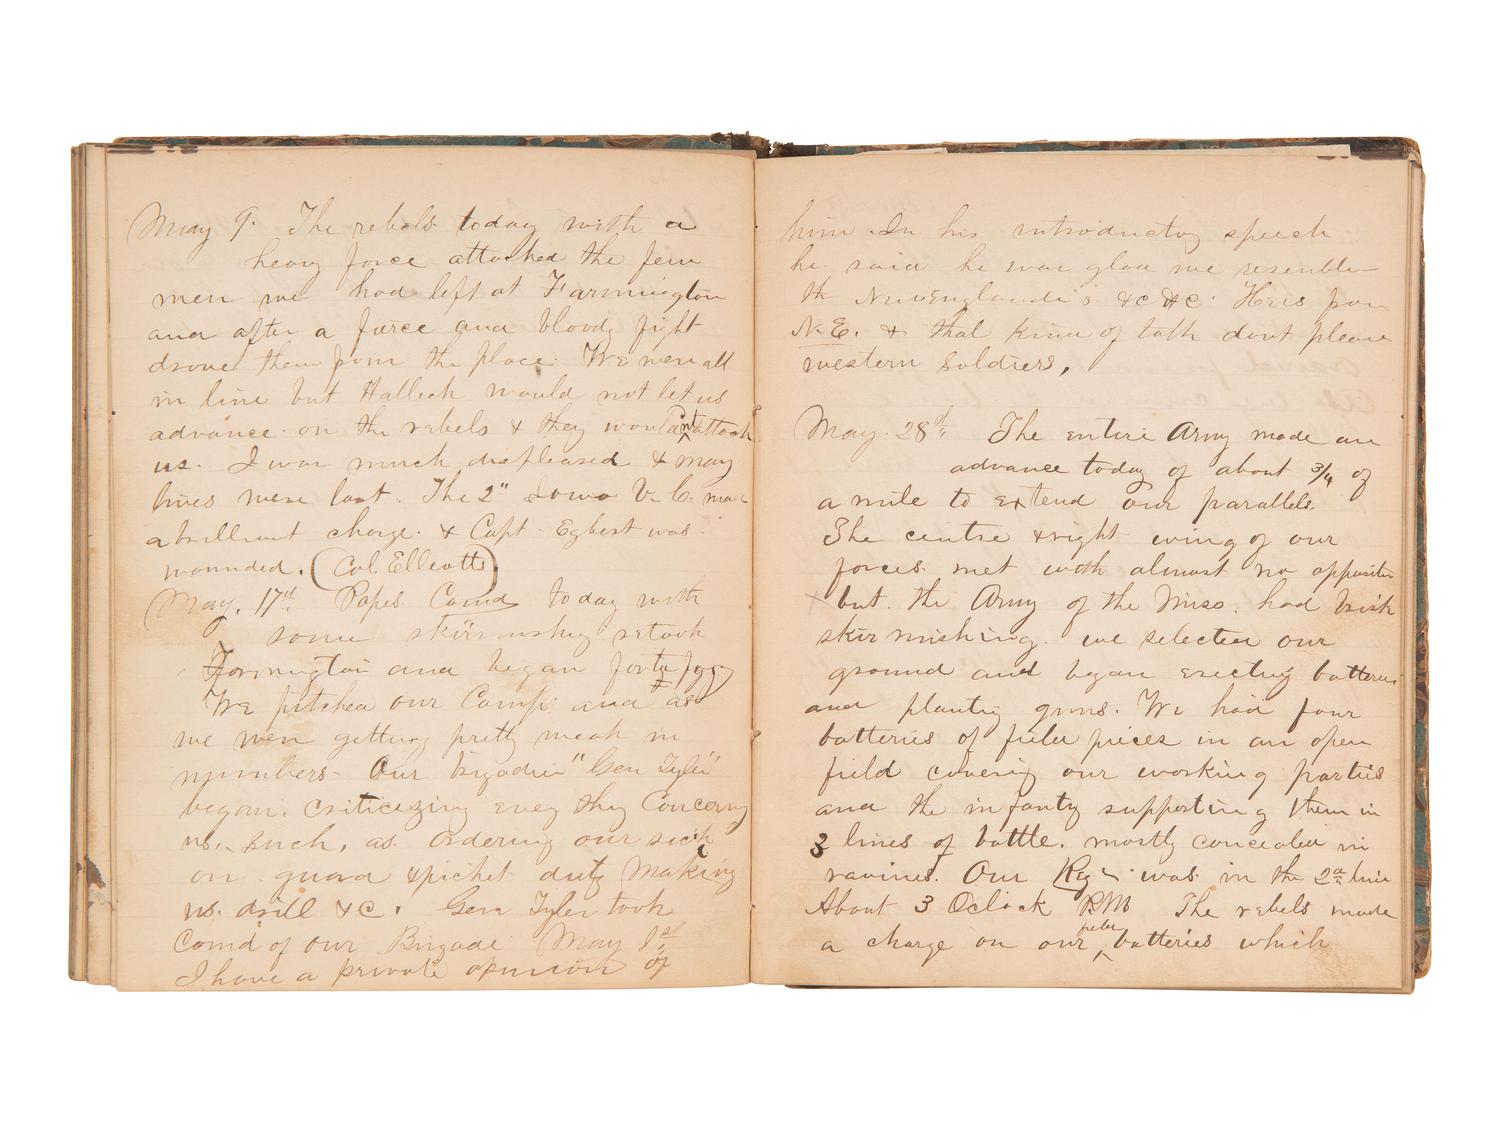 May 9. The rebels today with a
heavy force attacked the few
men we had left at Farmington
and after a fierce and bloody fight
drove them from the place. We were all
in line but Halleck would not let us
advance on the rebels & they would nt attack
us. I was much displeased & many
lives were lost. The 2" Iowa V. C. made
a brilliant charge. & Capt. Egbert was
wounded. (Col. Elleott)
May. 17th Popes Comd today with
some skirmishg retook
Farmington and began
We pitched our Camp and as
we were getting pretty weak in
numbers - Our brigadier "Gen Tyler"
began criticezing every thing Concerng
us. Such, as. Ordering our sick
on guard & picket duty Making
us. drill &c. Gen Tyler took
Comd of our Brigade May 1st
I have a private opinion of
him. In his introductory speech
he said he was glad we resemble-
th NewEnglande's &c &c. He is from
N.E. & that kind of talk dont please
western soldiers,
May. 28th. The entire Army made an
advance today of about 3/4 of
a mile to extend our parallels.
The centre & right wing of our
forces. met with almost no oppositon
x but. the Army of the Miss. had brisk
skirmishing. we selected our
ground and began erectig batteries
and plantig guns. We had four
batteries of field pieces in an open
field coverig our working parties
and the infanty supporting them in
3 lines of battle. mostly concealed in
ravines. Our Reg was in the 2d line
About 3 Oclock P.M. The rebels made
a charge on our field batteries which